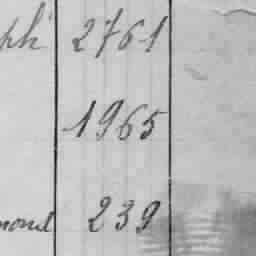 ph 2761
1965
mond 239